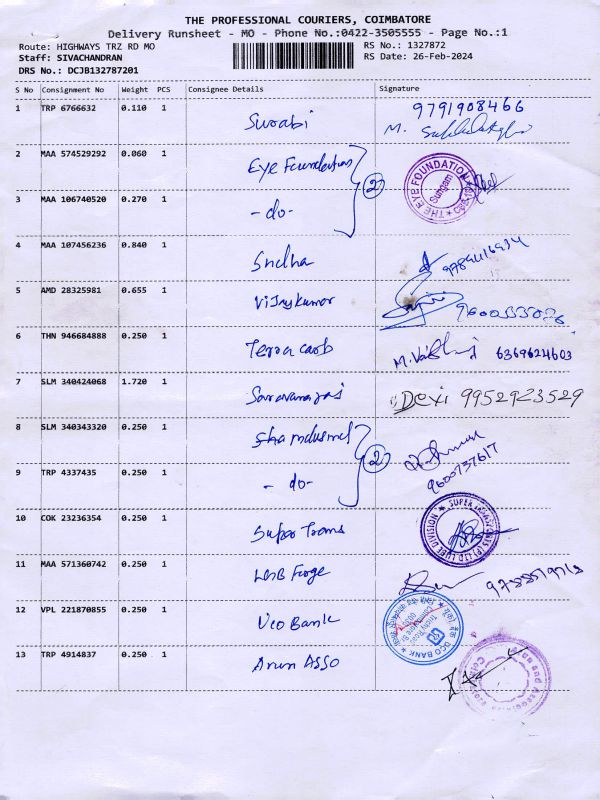 THE PROFESSIONAL COURIERS, COIMBATORE
Delivery Runsheet - MO - Phone No.:0422-3505555 - Page No.:1
Route: HIGHWAYS TRZ RD MO
RS No.: 1327872
Staff: SIVACHANDRAN
RS Date: 26-Feb-2024
DRS No.: DCJB132787201
S No Consignment No Weight PCS Consignee Details Signature
1 TRP 6766632 0.110 1 Surabi 9791908466
M.
2 MAA 574529292 0.060 1 Eye Foundation
THE EYE FOUNDATION
Sungam
3 MAA 106740520 0.270 1 -do-
2
4 MAA 107456236 0.840 1 Sndha
5 AMD 28325981 0.655 1 Vijaykumar
6 THN 946684888 0.250 1 Terra carb M. 6369624603
7 SLM 340424068 1.720 1 9952923529
8 SLM 340343320 0.250 1
9 TRP 4337435 0.250 1 -do- 9600737617
2
10 COK 23236354 0.250 1 Super Trans
SUPER LUBE DIVISION
11 MAA 571360742 0.250 1 Forge
12 VPL 221870855 0.250 1 Uco Bank
UCO BANK
13 TRP 4914837 0.250 1 Arun ASSO